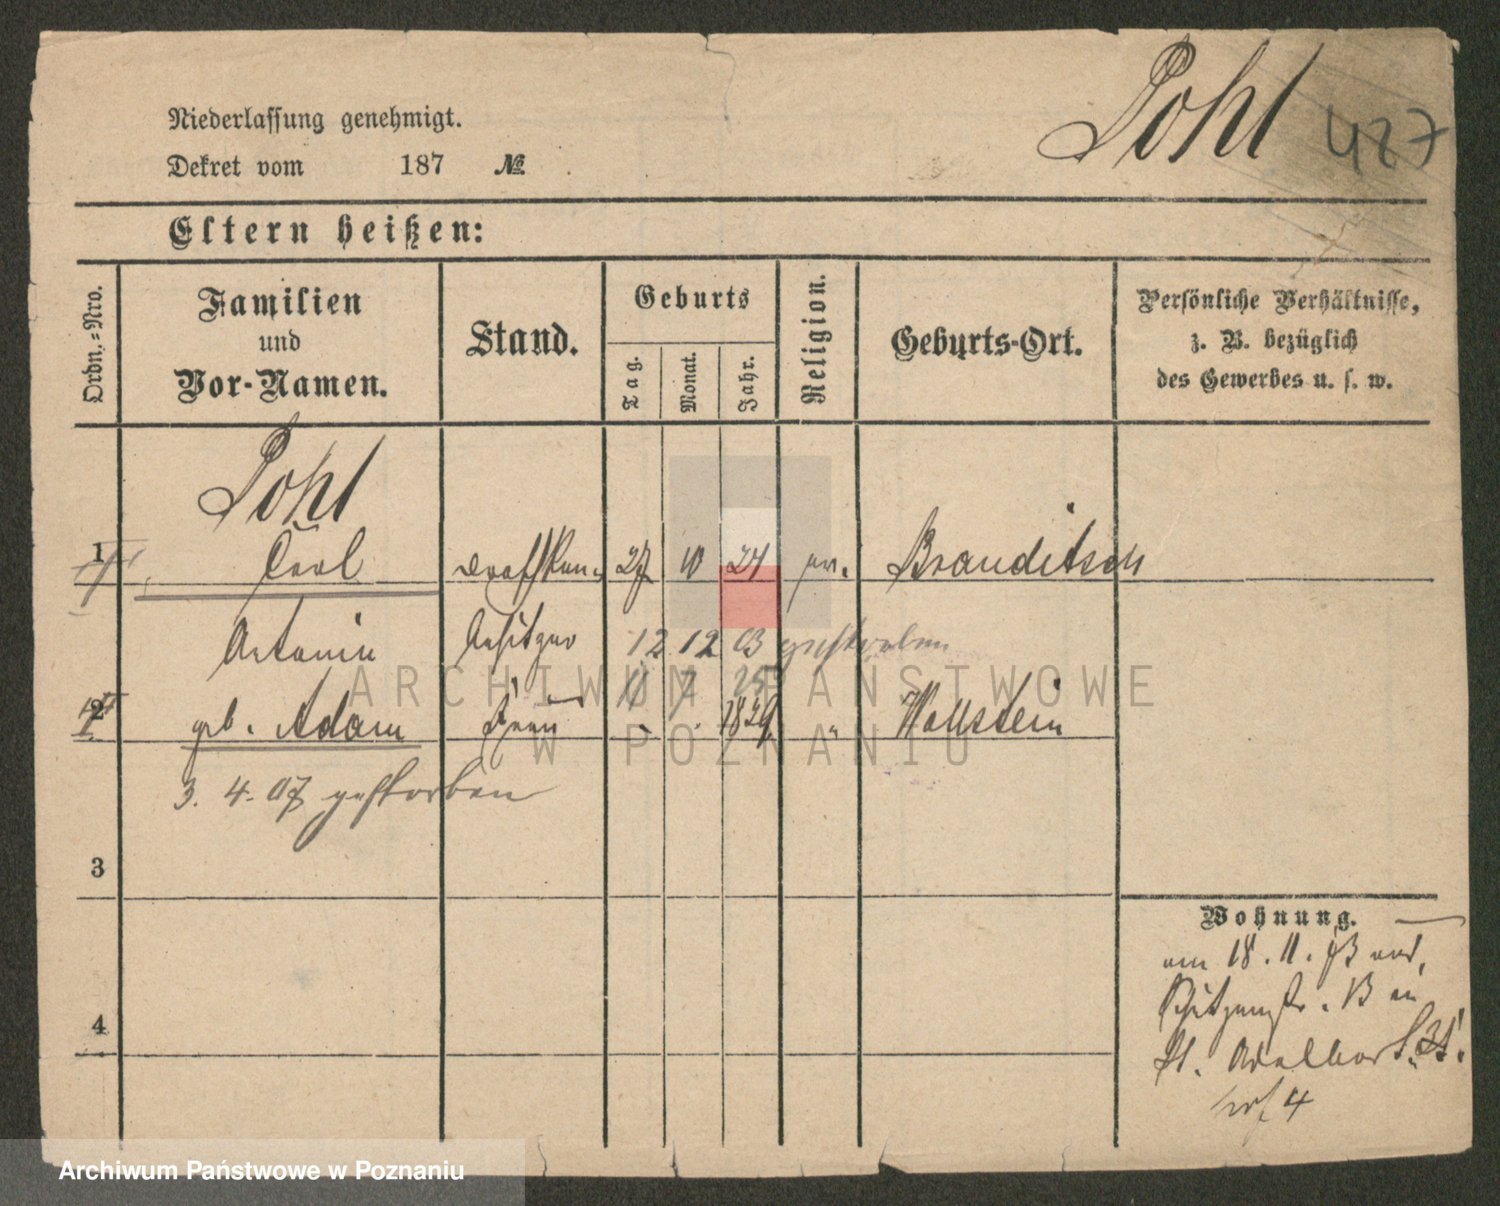 Pohl 427
Niederlassung genehmigt.
Dekret vom 187 №
Eltern heißen:
Ordn.-Nro.
Familien
und
Vor-Namen.
Stand.
Geburts
Tag.
Monat.
Jahr.
Religion.
Geburts-Ort.
Persönliche Verhältnisse,
z. B. bezüglich
des Gewerbes u. s. w.
Pohl
1 Carl 27 10 24 Branditsch
Antonie besitzer 12 12 03 gestorben
11 7 25
2 geb. Adam Frau - - 1829 " Wollstein
3. 4. 07 gestorben
3
4
Wohnung.
am 18. 11. 93 aus
Schützenstr. 13 in
St. Adalbert
Hof 4
ARCHIWUM PAŃSTWOWE
W POZNANIU
Archiwum Państwowe w Poznaniu